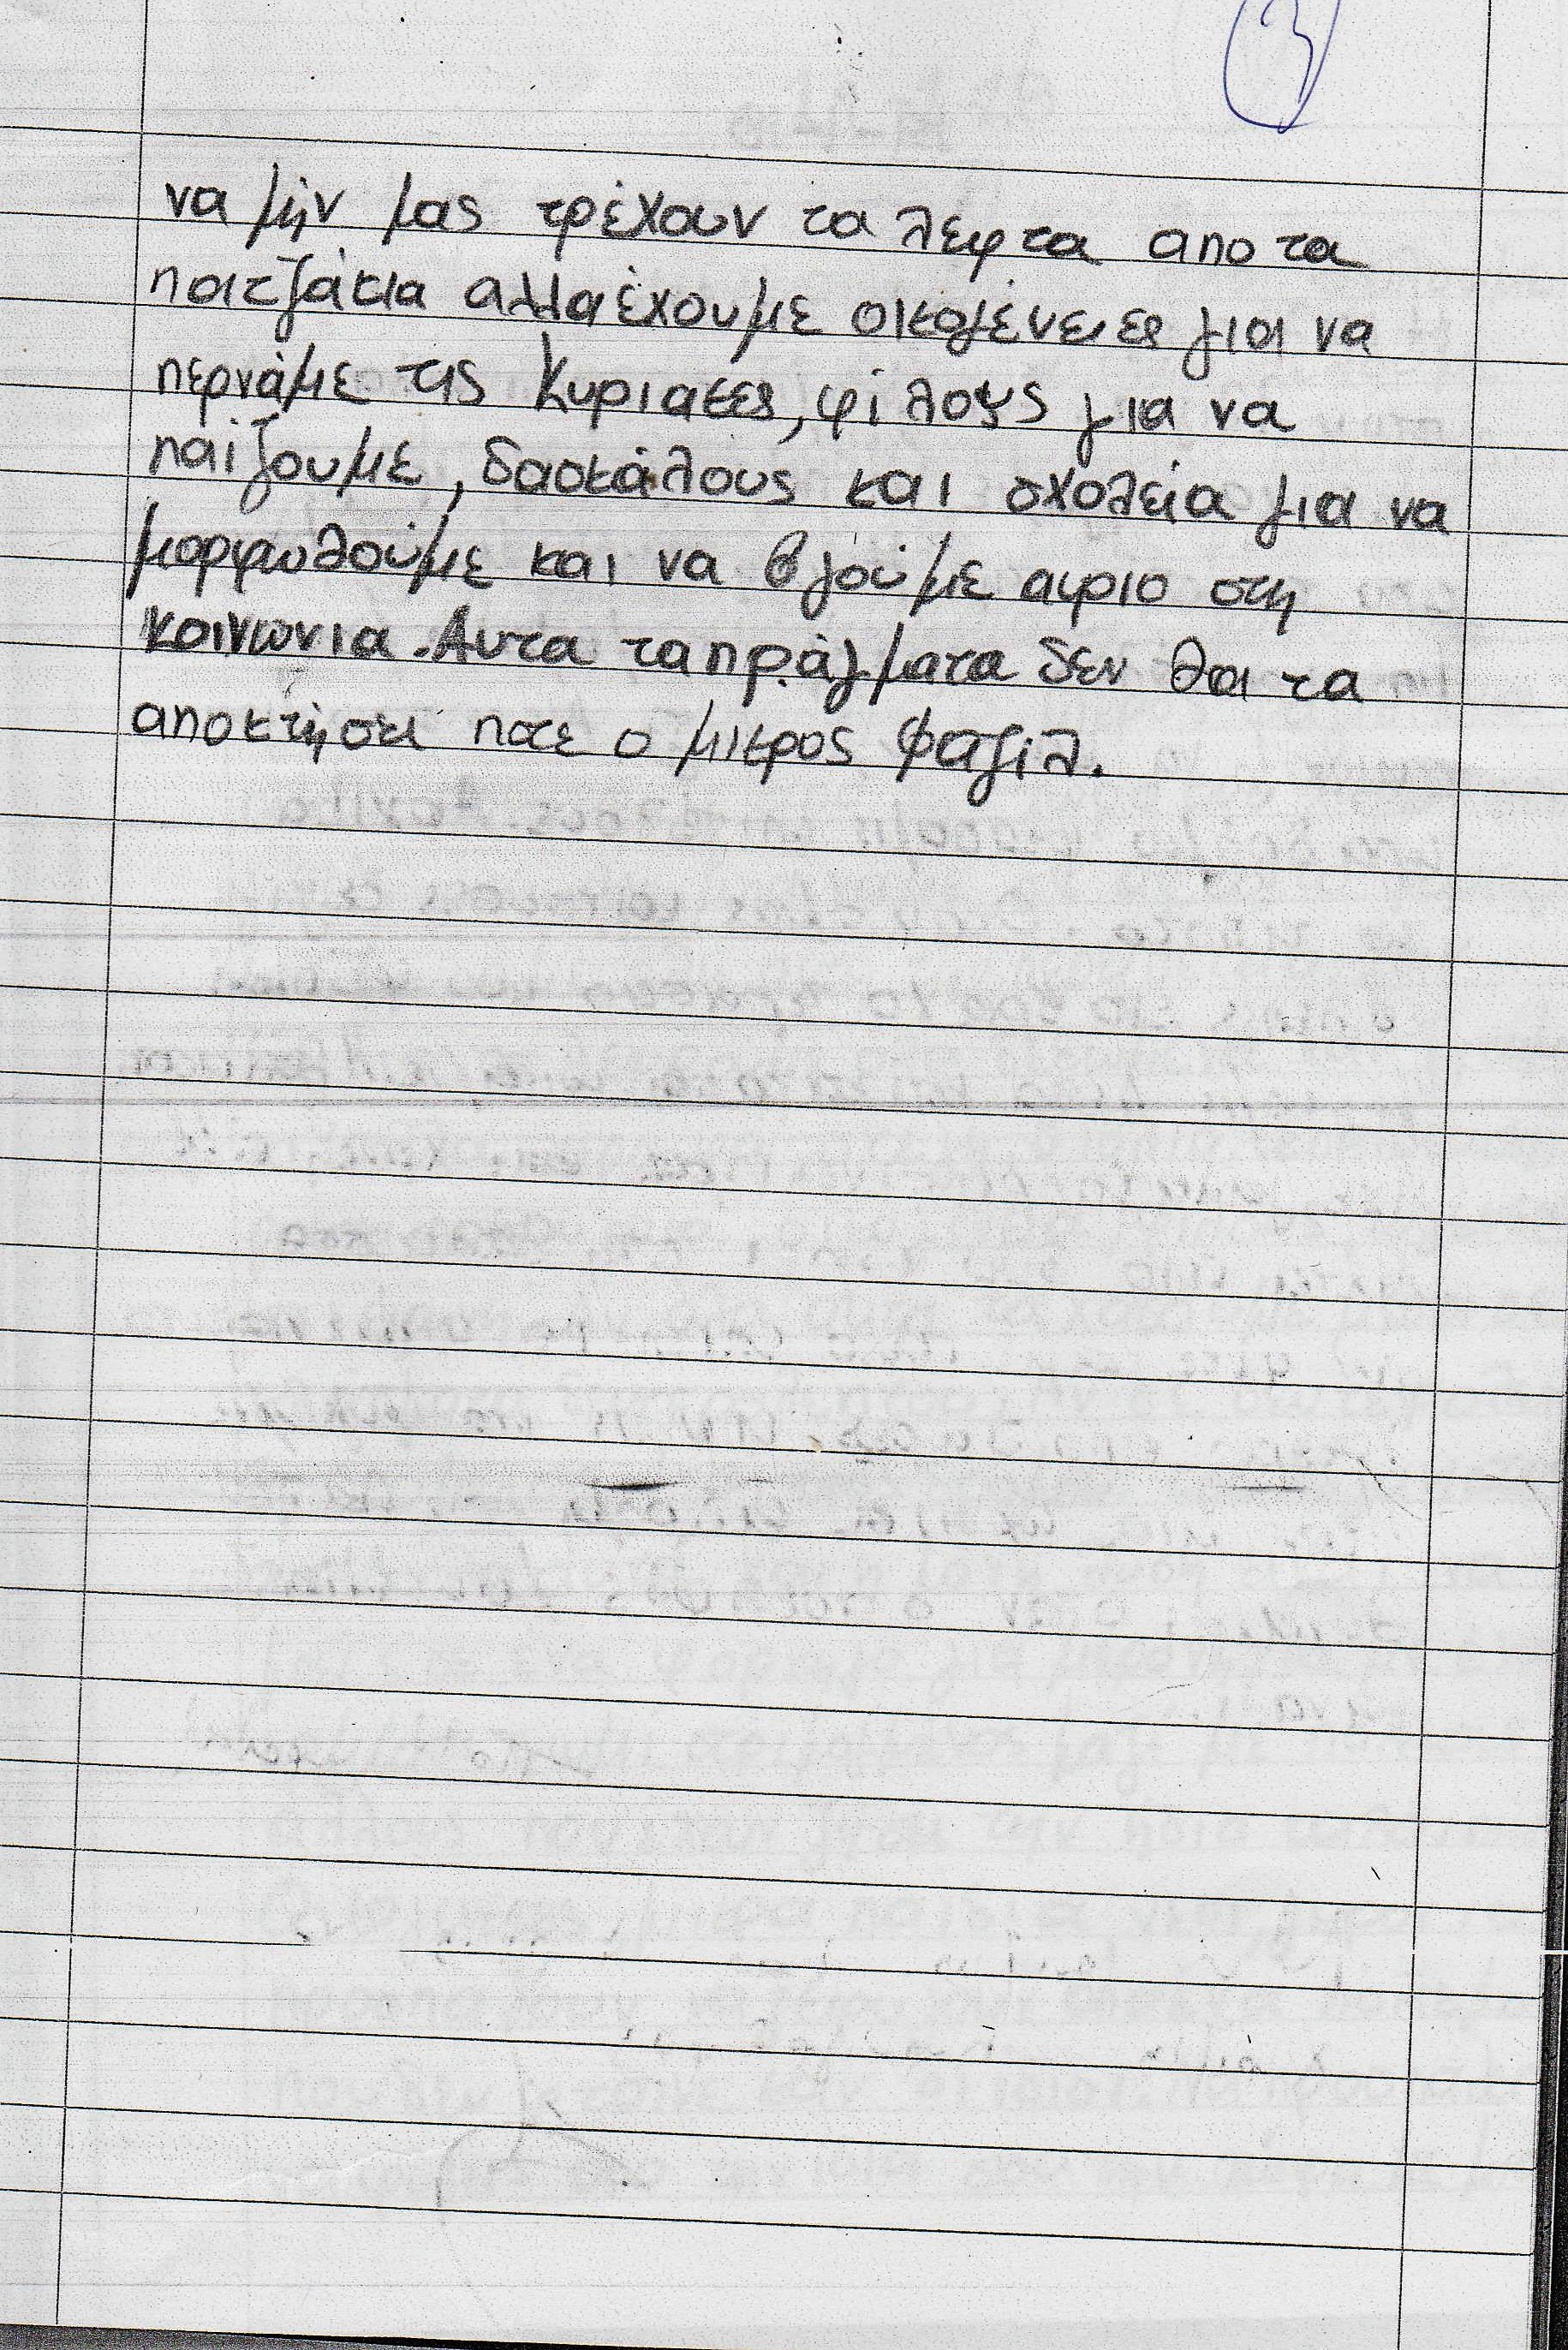 3
να μήν μας τρέχουν τα λεφτα απο τα
πατζάκια αλλα έχουμε οικογένειες για να
περνάμε τις Κυριακες, φίλους για να
παίζουμε, δασκάλους και σχολεία για να
μορφωθούμε και να βγούμε αυριο στη
κοινωνια. Αυτα τα πράγματα δεν θα τα
αποκτήσει ποτε ο μικρος Φαζίλ.